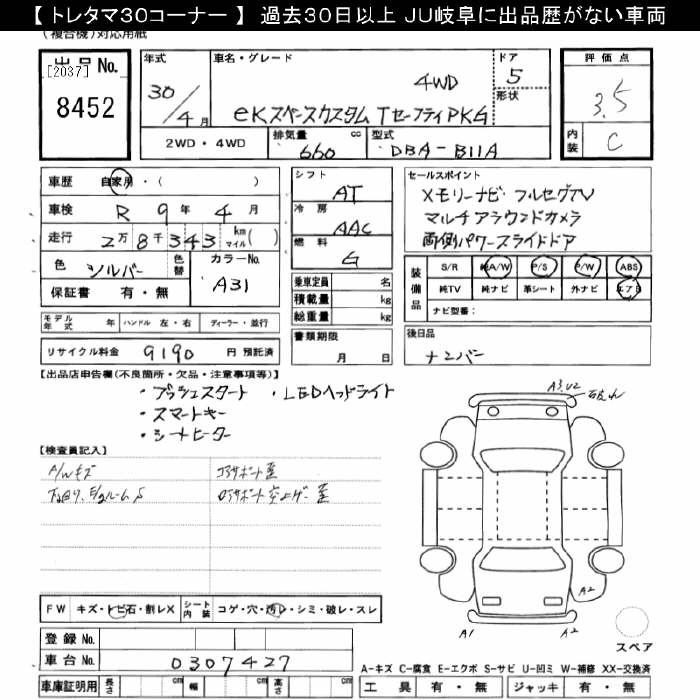 【トレタマ30コーナー】 過去30日以上 JU岐阜に出品歴がない車両
(複合機)対応用紙
出品No.
[2037]
8452
年式
30/4月
車名・グレード
4WD
eKスペースカスタム TセーフティPKG
ドア
5
形状
評価点
3.5
内装
C
2WD・4WD
排気量 cc
660
型式
DBA-B11A
車歴 自家用・( )
車検 R 9年 4月
走行 2万8千343 km マイル( )
色 シルバー 色替
カラーNo.
A31
保証書 有・無
シフト
AT
冷房
AAC
燃料
G
乗車定員 名
積載量 kg
総重量 kg
セールスポイント
メモリーナビ・フルセグTV
マルチアラウンドカメラ
両側パワースライドドア
装備品
S/R 純A/W P/S P/W ABS
純TV 純ナビ 革シート 外ナビ エアB
ナビ型番:
モデル年式 年 ハンドル 左・右 ディーラー・並行
リサイクル料金 9190 円 預託済
書類期限
月 日
後日品
ナンバー
【出品店申告欄(不良箇所・欠品・注意事項等)】
・プッシュスタート ・LEDヘッドライト
・スマートキー
・シートヒーター
【検査員記入】
A/Wキズ
A3.U2
A1
A2
A2
FW キズ・トビ石・割レX シート内装 コゲ・穴・汚レ・シミ・破レ・スレ
登録No.
車台No. 0307427
スペア
A-キズ C-腐食 E-エクボ S-サビ U-凹ミ W-補修 XX-交換済
車庫証明用 長さ cm 幅 cm 高さ cm
工具 有・無 ジャッキ 有・無